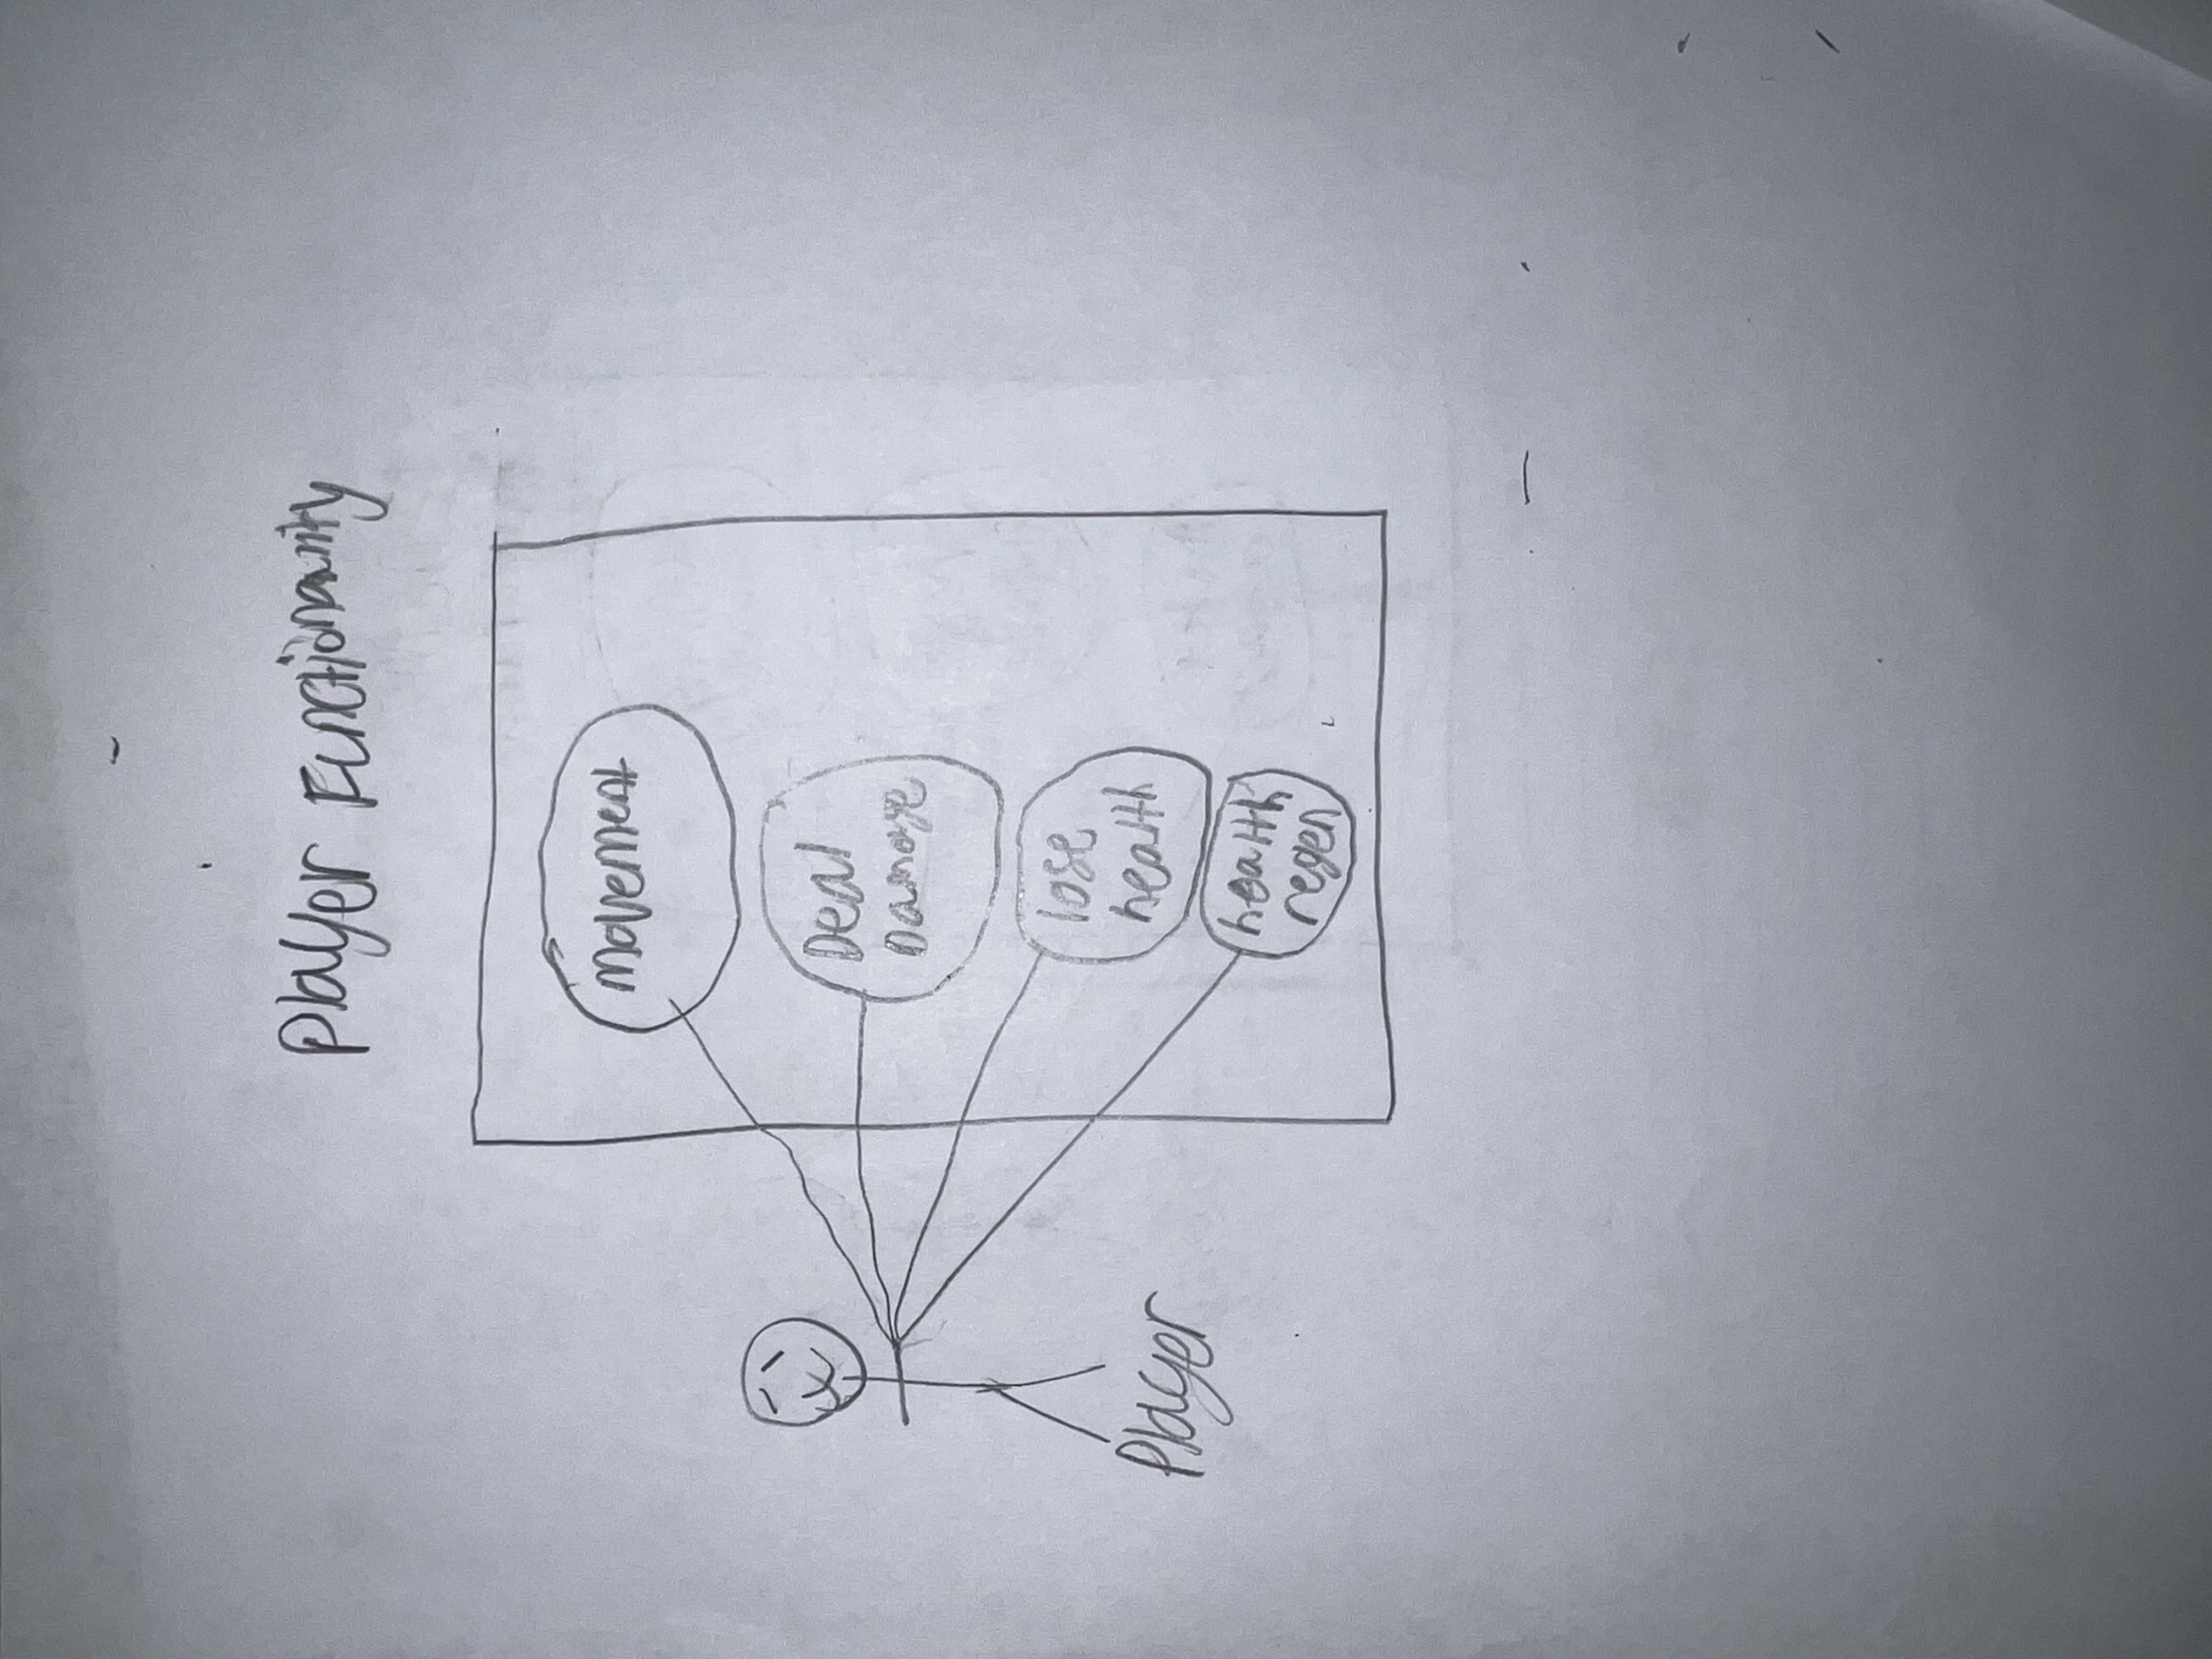 Player Functionanity
movement
Deal
Damage
lose
health
health
regen
Player